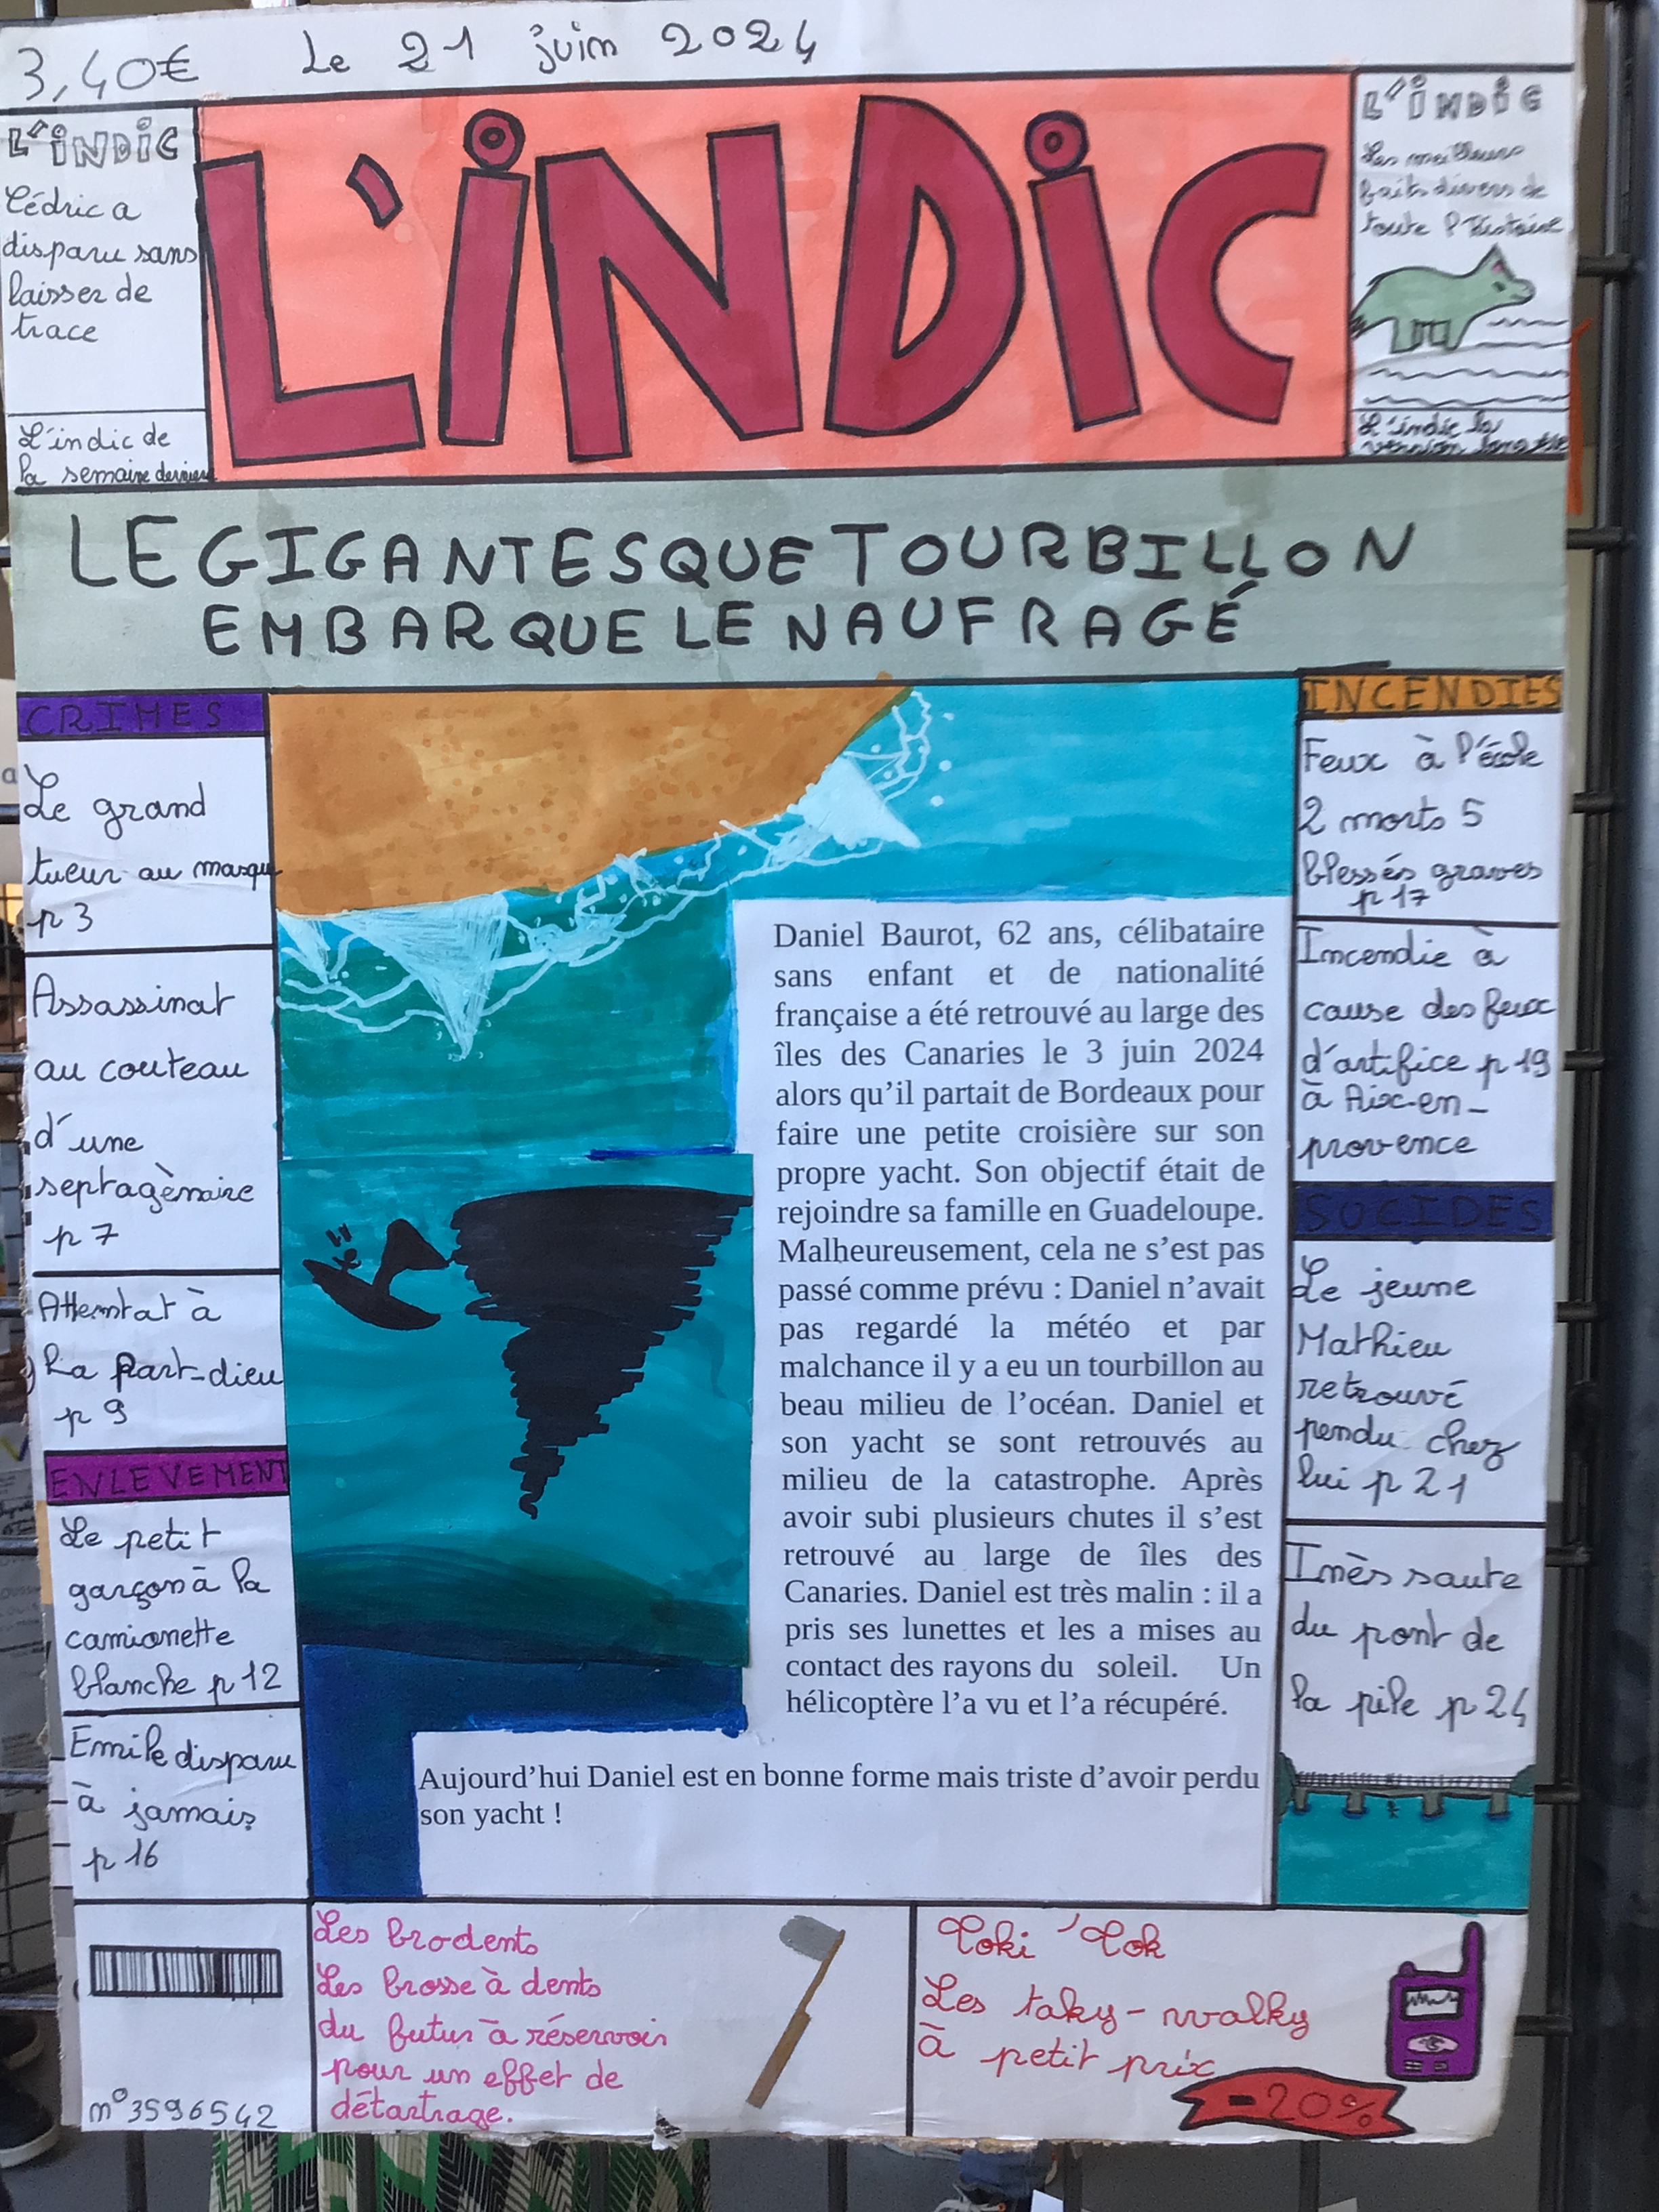 3,40€ Le 21 juin 2024
L'iNDiC
Cédric a
disparu sans
laisser de
trace
L'indic de
la semaine dernière
L'iNDiC
L'iNDiC
Les meilleurs
faits divers de
toute l'histoire
L'indic la
version
LE GIGANTESQUE TOURBILLON
EMBARQUE LE NAUFRAGÉ
CRIMES
Le grand
tueur au masqu
p 3
Assassinat
au couteau
d'une
septagènaire
p 7
Attentat à
la part-dieu
p 9
ENLEVEMENT
Le petit
garçon à la
camionette
blanche p 12
Emile disparu
à jamais
p 16
Daniel Baurot, 62 ans, célibataire
sans enfant et de nationalité
française a été retrouvé au large des
îles des Canaries le 3 juin 2024
alors qu'il partait de Bordeaux pour
faire une petite croisière sur son
propre yacht. Son objectif était de
rejoindre sa famille en Guadeloupe.
Malheureusement, cela ne s'est pas
passé comme prévu : Daniel n'avait
pas regardé la météo et par
malchance il y a eu un tourbillon au
beau milieu de l'océan. Daniel et
son yacht se sont retrouvés au
milieu de la catastrophe. Après
avoir subi plusieurs chutes il s'est
retrouvé au large de îles des
Canaries. Daniel est très malin : il a
pris ses lunettes et les a mises au
contact des rayons du soleil. Un
hélicoptère l'a vu et l'a récupéré.
Aujourd'hui Daniel est en bonne forme mais triste d'avoir perdu
son yacht !
INCENDIES
Feux à l'école
2 morts 5
blessés graves
p 17
Incendie à
cause des feux
d'artifice p 19
à Aix-en-
provence
SUCIDES
Le jeune
Mathieu
retrouvé
pendu chez
lui p 21
Inès saute
du pont de
la pile p 24
n°3596542
Les brodents
Les brosse à dents
du futur à réservoir
pour un effet de
détartrage.
Toki'Tok
Les taky-walky
à petit prix
-20%